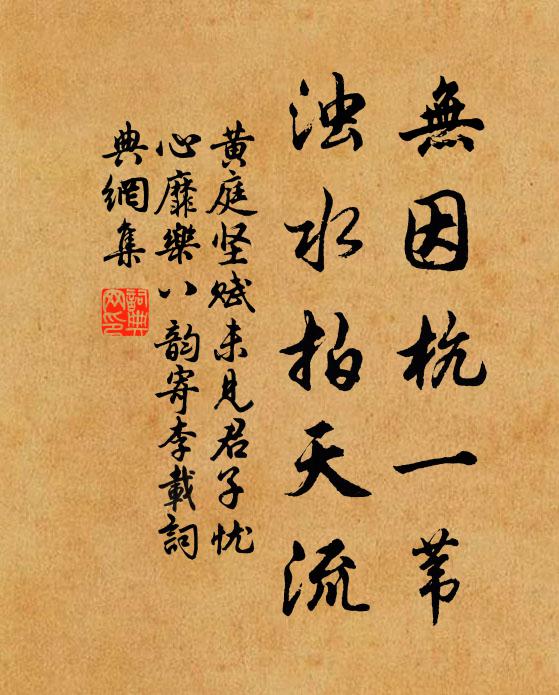 無因杭一苇
浊水拍天流
黄庭坚赋未見君子忧
心靡樂八韵寄李載詞
典網集
詞典網印